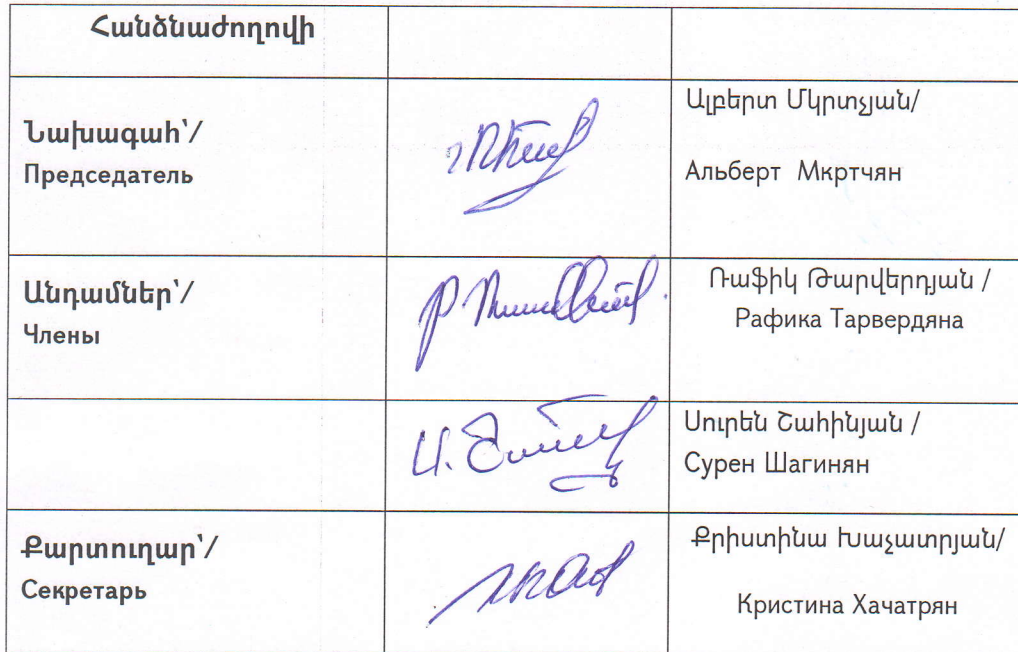 Հանձնաժողովի
Նախագահ՝/
Председатель
Ալբերտ Մկրտչյան/
Альберт Мкртчян
Անդամներ՝/
Члены
Ռաֆիկ Թարվերդյան /
Рафика Тарвердяна
Սուրեն Շահինյան /
Сурен Шагинян
Քարտուղար՝/
Секретарь
Քրիստինա Խաչատրյան/
Кристина Хачатрян